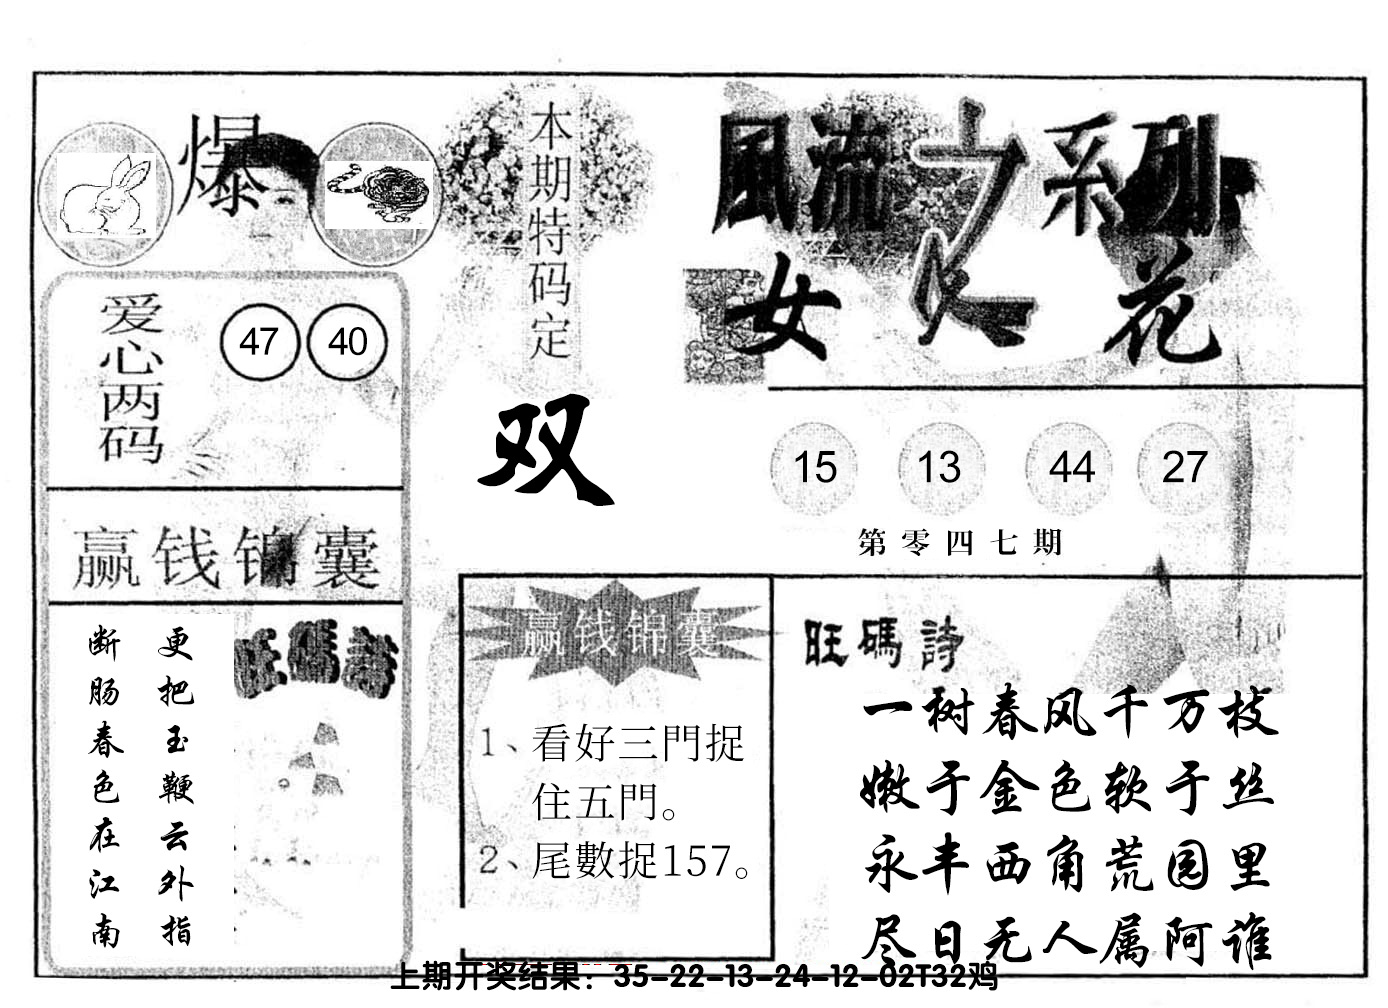 爆
本期特码定
双
風流之系列
女人花
爱心两码
47 40
15 13 44 27
第零四七期
赢钱锦囊
更把玉鞭云外指
断肠春色在江南
旺碼詩
赢钱锦囊
1、看好三門捉
住五門。
2、尾數捉157。
旺碼詩
一树春风千万枝
嫩于金色软于丝
永丰西角荒园里
尽日无人属阿谁
上期开奖结果：35-22-13-24-12-02T32鸡